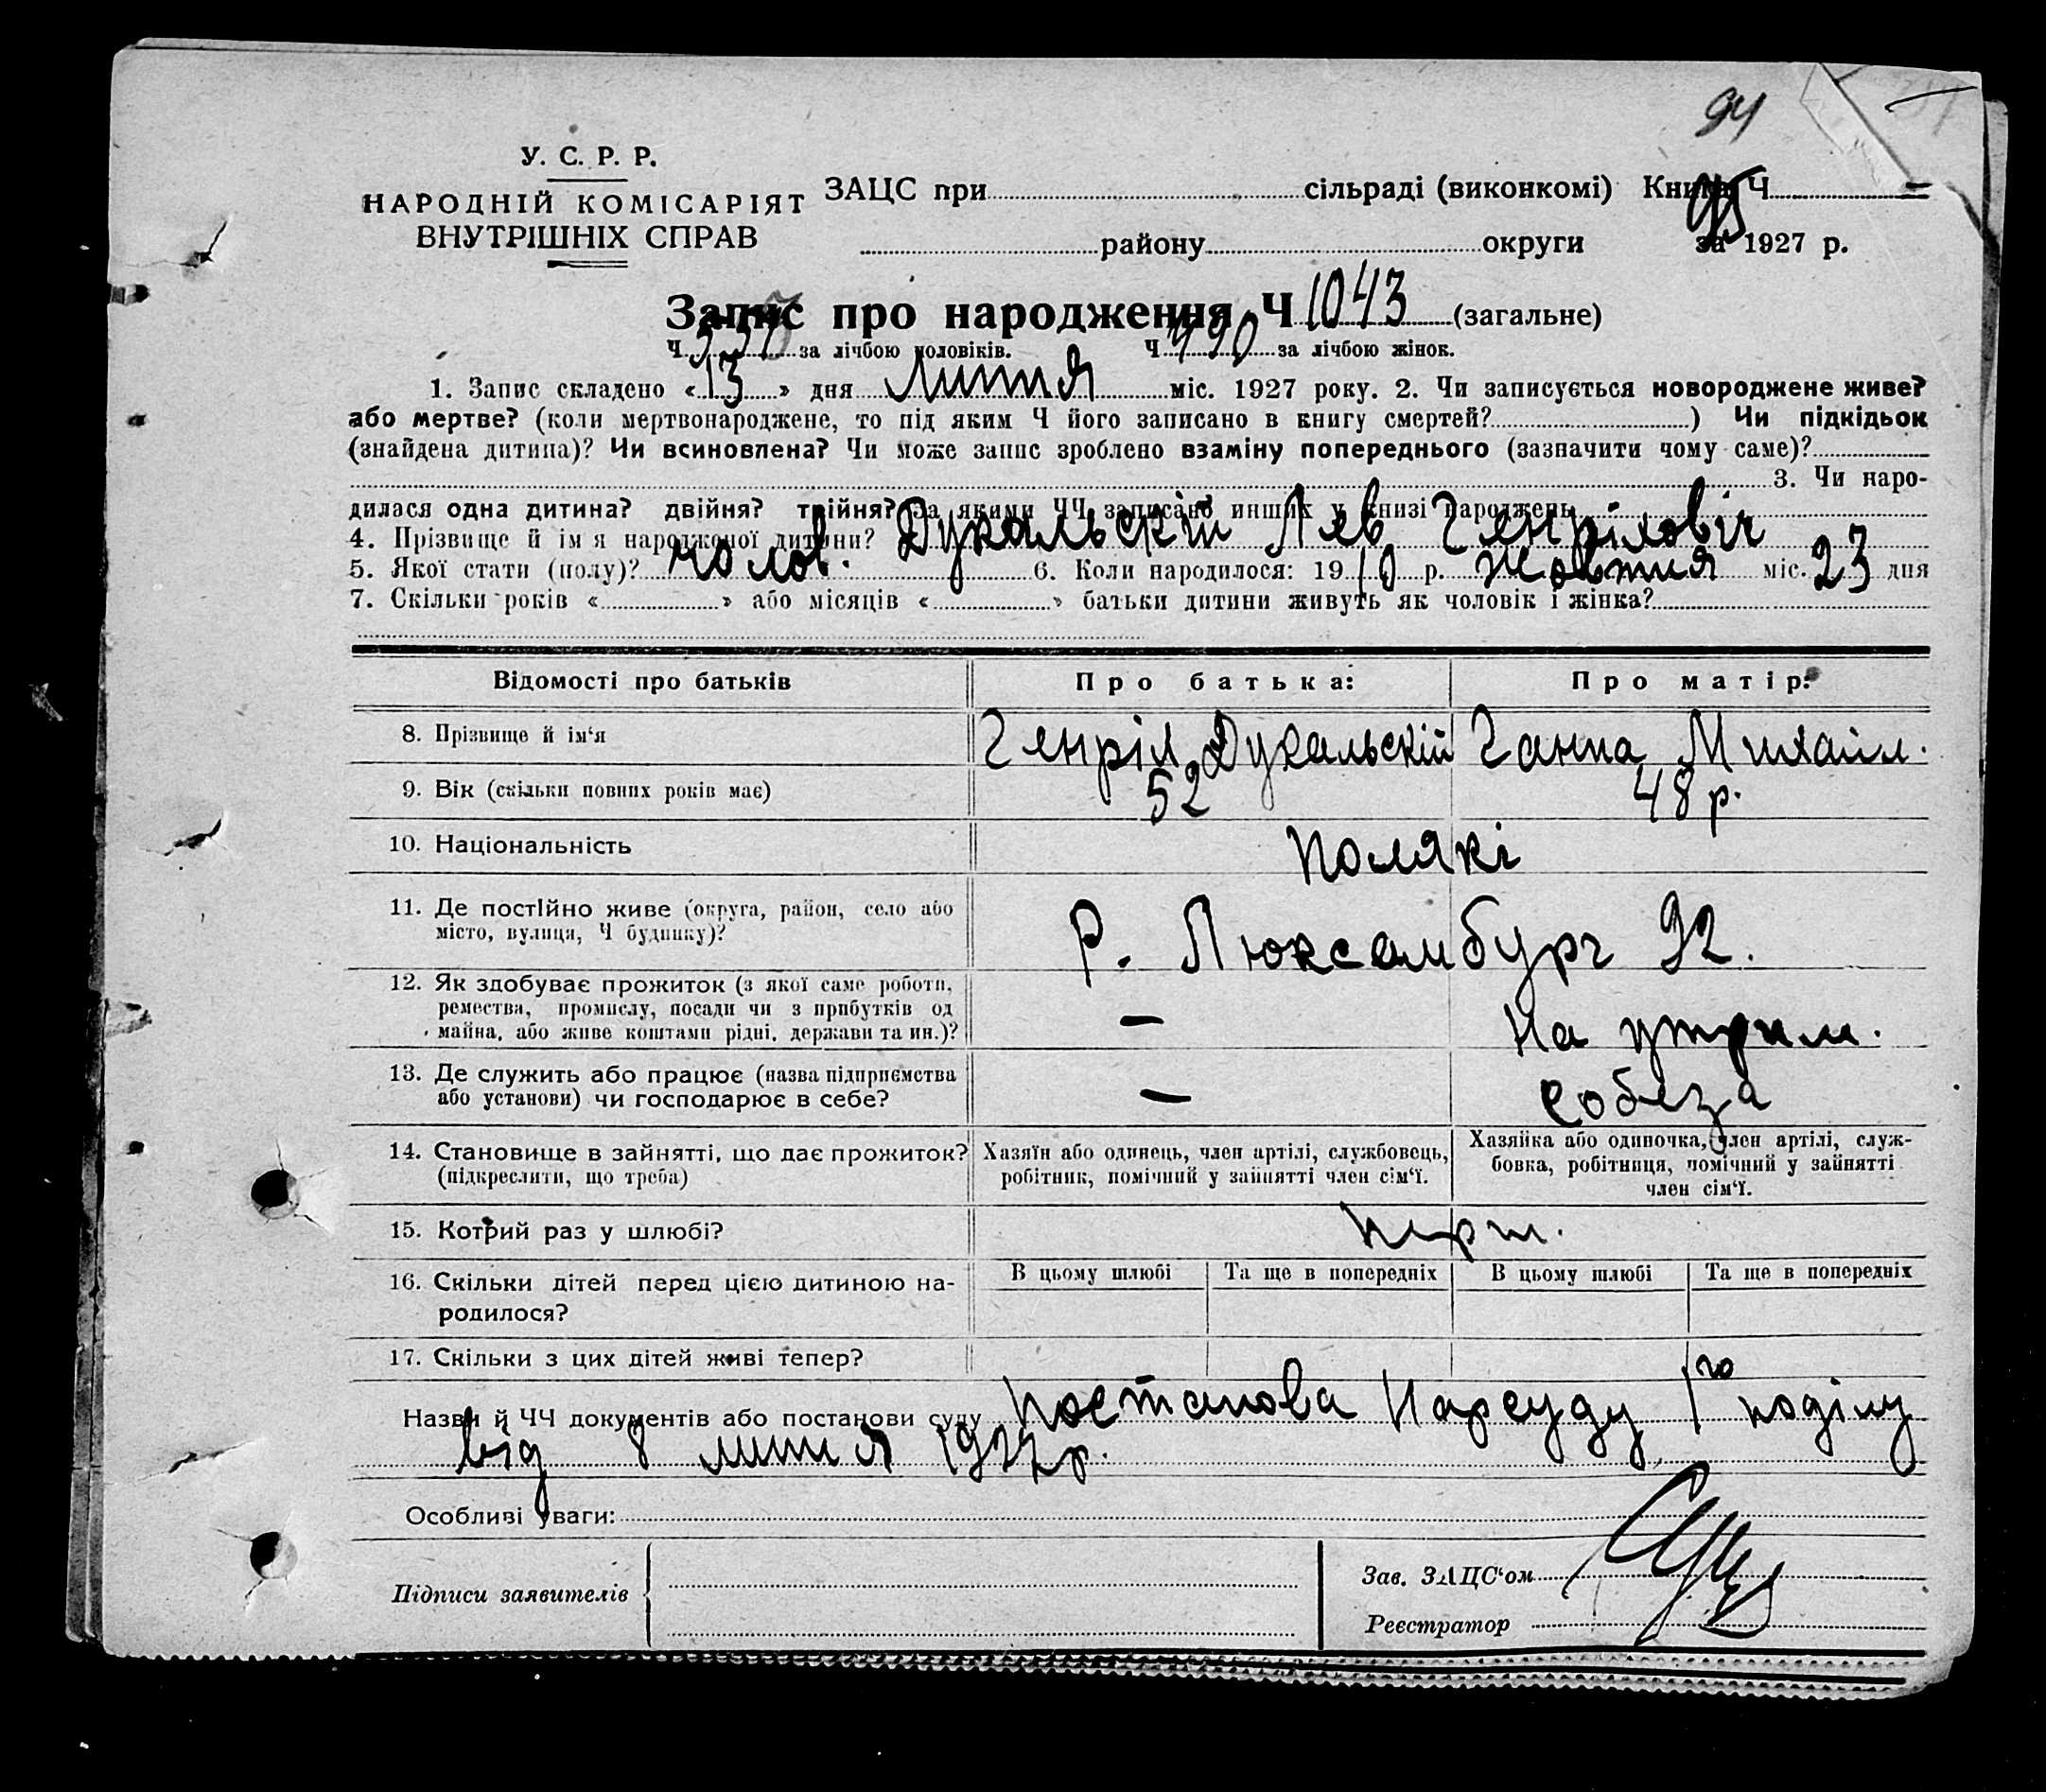 94
У. С. Р. Р.
НАРОДНІЙ КОМІСАРІЯТ
ВНУТРІШНІХ СПРАВ
ЗАЦС при сільраді (виконкомі) Книга Ч 95
району округи за 1927 р.
Запис про народження Ч 1043 (загальне)
Ч. за лічбою чоловіків. Ч. 490 за лічбою жінок.
1. Запис складено «13» дня Липня міс. 1927 року. 2. Чи записується новороджене живе?
або мертве? (коли мертвонароджене, то під яким Ч його записано в книгу смертей? ) Чи підкідьок
(знайдена дитина)? Чи всиновлена? Чи може запис зроблено взаміну попереднього (зазначити чому саме)?
3. Чи наро-
дилася одна дитина? двійня? трійня? За якими ЧЧ записано инших у книзі народжень
4. Прізвище й ім я народженої дитини? Дукальскій Лев Генріховіч
5. Якої стати (полу)? чолов. 6. Коли народилося: 1910 р. жовтня міс. 23 дня
7. Скільки років « » або місяців « » батьки дитини живуть як чоловік і жінка?
Відомості про батьків Про батька: Про матір:
8. Прізвище й ім‘я Генріх Дукальскій Ганна Михайл.
9. Вік (скільки повних років має) 52 48 р.
10. Національність Полякі
11. Де постійно живе (округа, район, село або
місто, вулиця, Ч будинку)? Р. Люксамбург 92.
12. Як здобуває прожиток (з якої саме роботи,
ремества, промислу, посади чи з прибутків од
майна, або живе коштами рідні, держави та ин.)? — На утрим.
13. Де служить або працює (назва підприємства
або установи) чи господарює в себе? — собеза
14. Становище в зайнятті, що дає прожиток?
(підкреслити, що треба)
Хазяїн або одинець, член артілі, службовець,
робітник, помічний у зайнятті член сім‘ї.
Хазяйка або одиночка, член артілі, служ-
бовка, робітниця, помічний у зайнятті
член сім‘ї.
15. Котрий раз у шлюбі? перш.
16. Скільки дітей перед цією дитиною на-
родилося?
В цьому шлюбі Та ще в попередніх В цьому шлюбі Та ще в попередніх
17. Скільки з цих дітей живі тепер?
Назви й ЧЧ документів або постанови суду Постанова Нарсуду 1го поділу
від 8 липня 1927 р.
Особливі уваги:
Підписи заявителів
Зав. ЗАЦС‘ом
Реєстратор